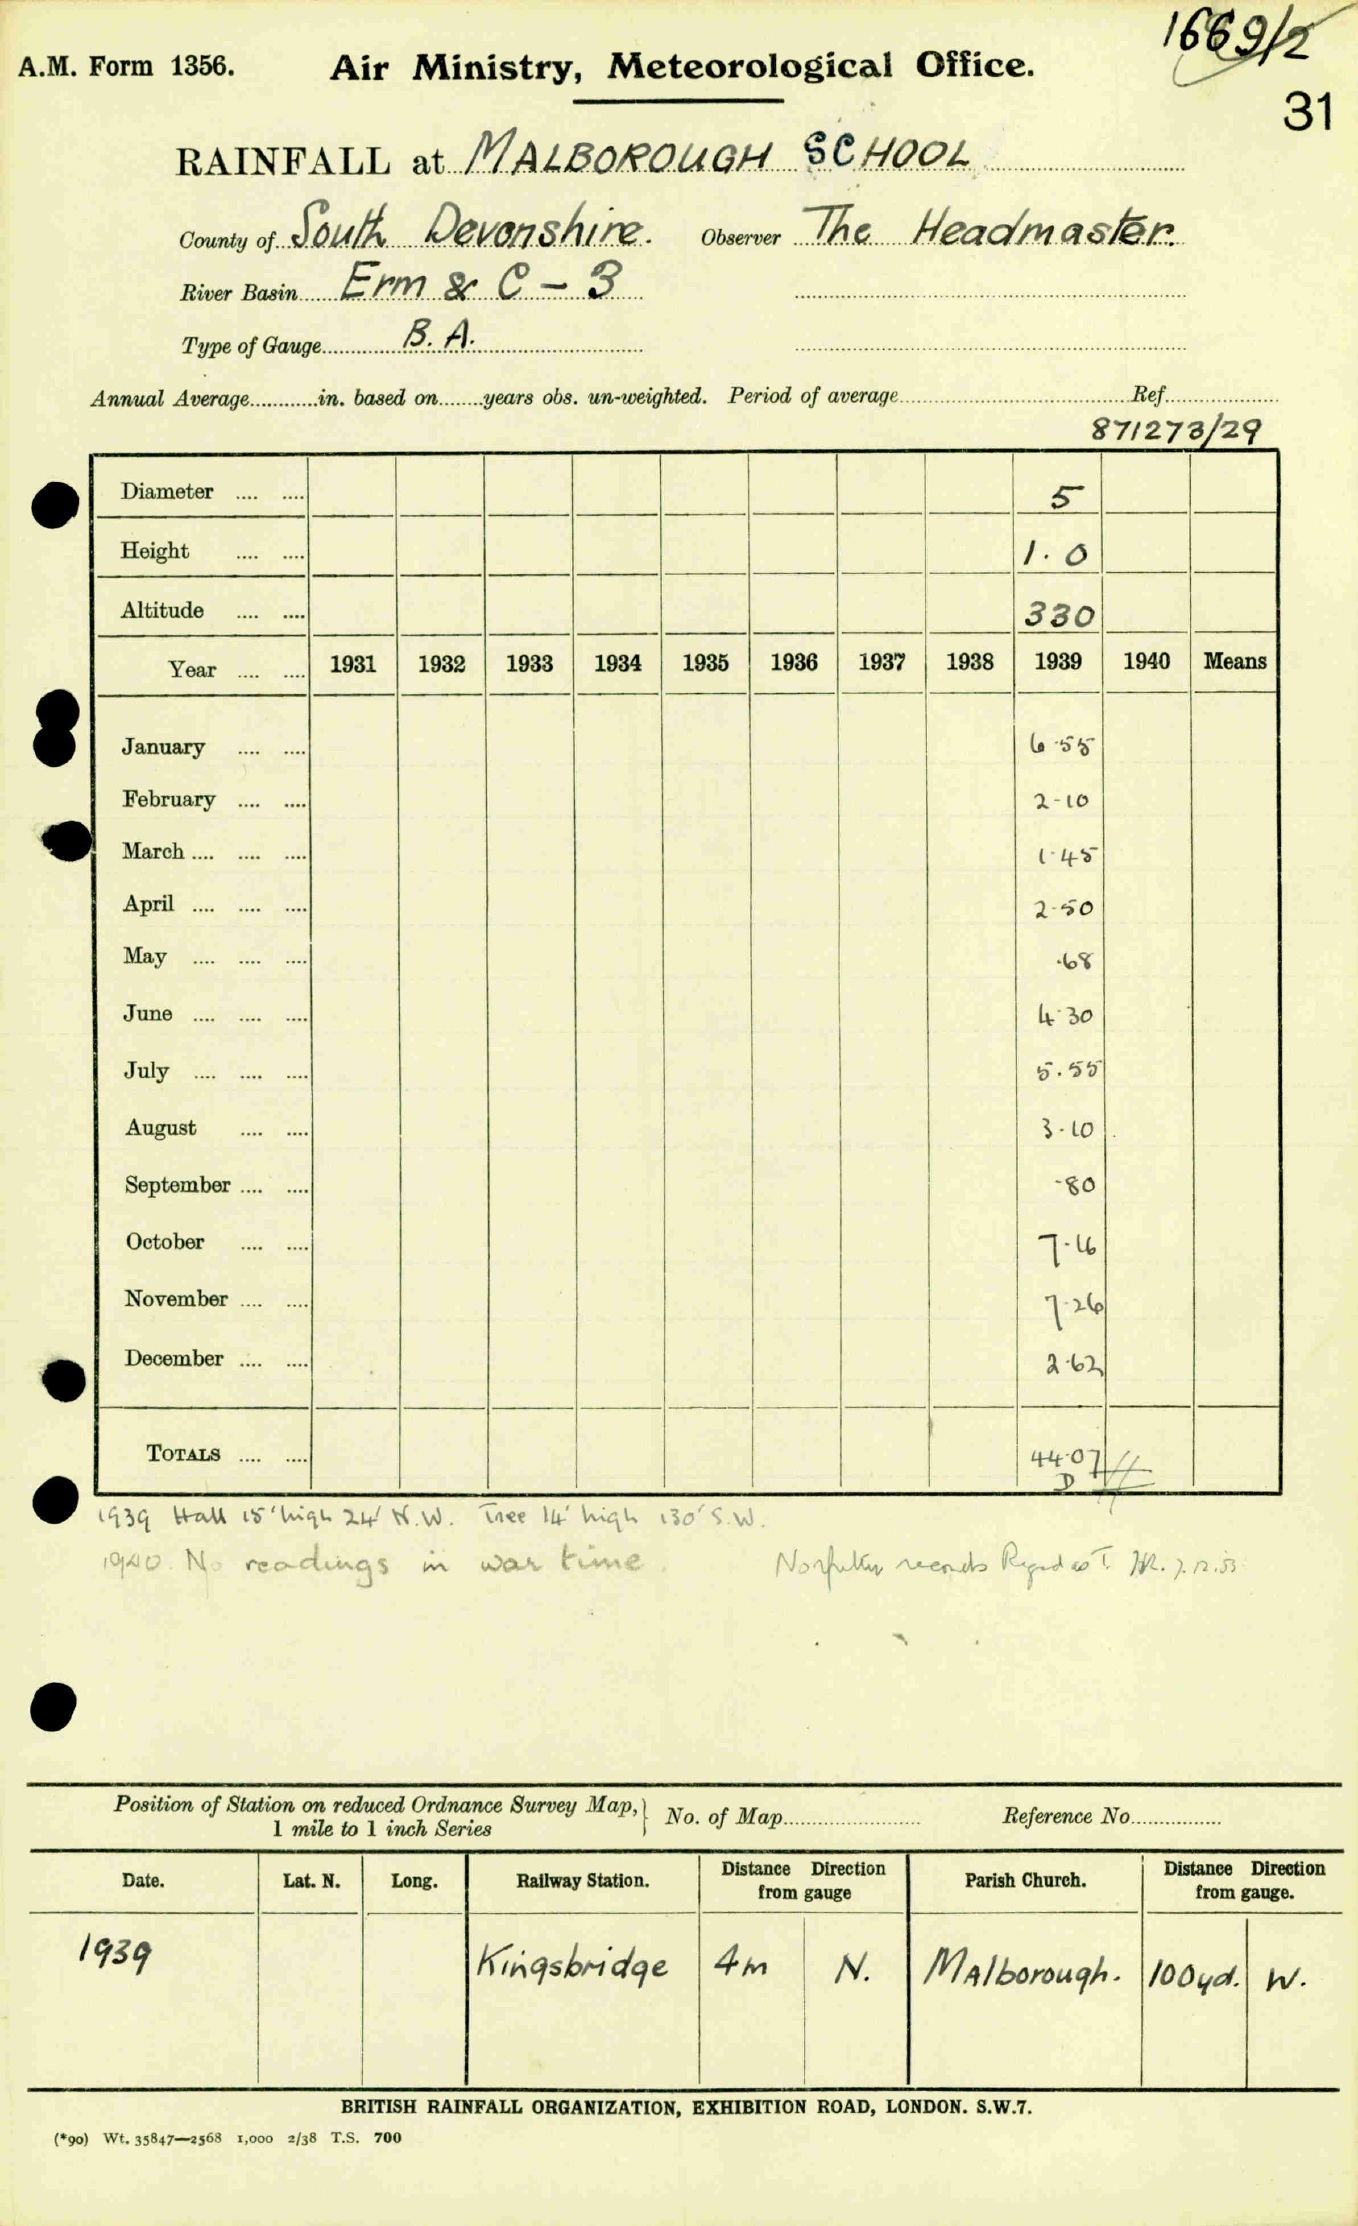 1669/2
A.M. Form 1356. Air Ministry, Meteorological Office.
31
RAINFALL at MALBOROUGH SCHOOL
County of South Devonshire. Observer The Headmaster.
River Basin Erm & C - 3
Type of Gauge B. A.
Annual Average............in. based on........years obs. un-weighted. Period of average........................Ref....................
871273/29
Diameter .... .... 5
Height .... .... 1.0
Altitude .... .... 330
Year .... .... 1931 1932 1933 1934 1935 1936 1937 1938 1939 1940 Means
January .... .... 6.55
February .... .... 2.10
March .... .... .... 1.45
April .... .... .... 2.50
May .... .... .... .68
June .... .... .... 4.30
July .... .... .... 5.55
August .... .... 3.10
September .... .... .80
October .... .... 7.16
November .... .... 7.26
December .... .... 2.62
TOTALS .... .... 44.07
D
1939 Hall 15' high 24' N.W. Tree 14' high 130' S.W.
1940. No readings in war time.
No further records Regard as T. 7.12.53
Position of Station on reduced Ordnance Survey Map, } No. of Map........................ Reference No................
1 mile to 1 inch Series
Date. Lat. N. Long. Railway Station. Distance Direction from gauge Parish Church. Distance Direction from gauge.
1939 Kingsbridge 4m N. Malborough. 100yd. W.
BRITISH RAINFALL ORGANIZATION, EXHIBITION ROAD, LONDON. S.W.7.
(*90) Wt. 35847—2568 1,000 2/38 T.S. 700